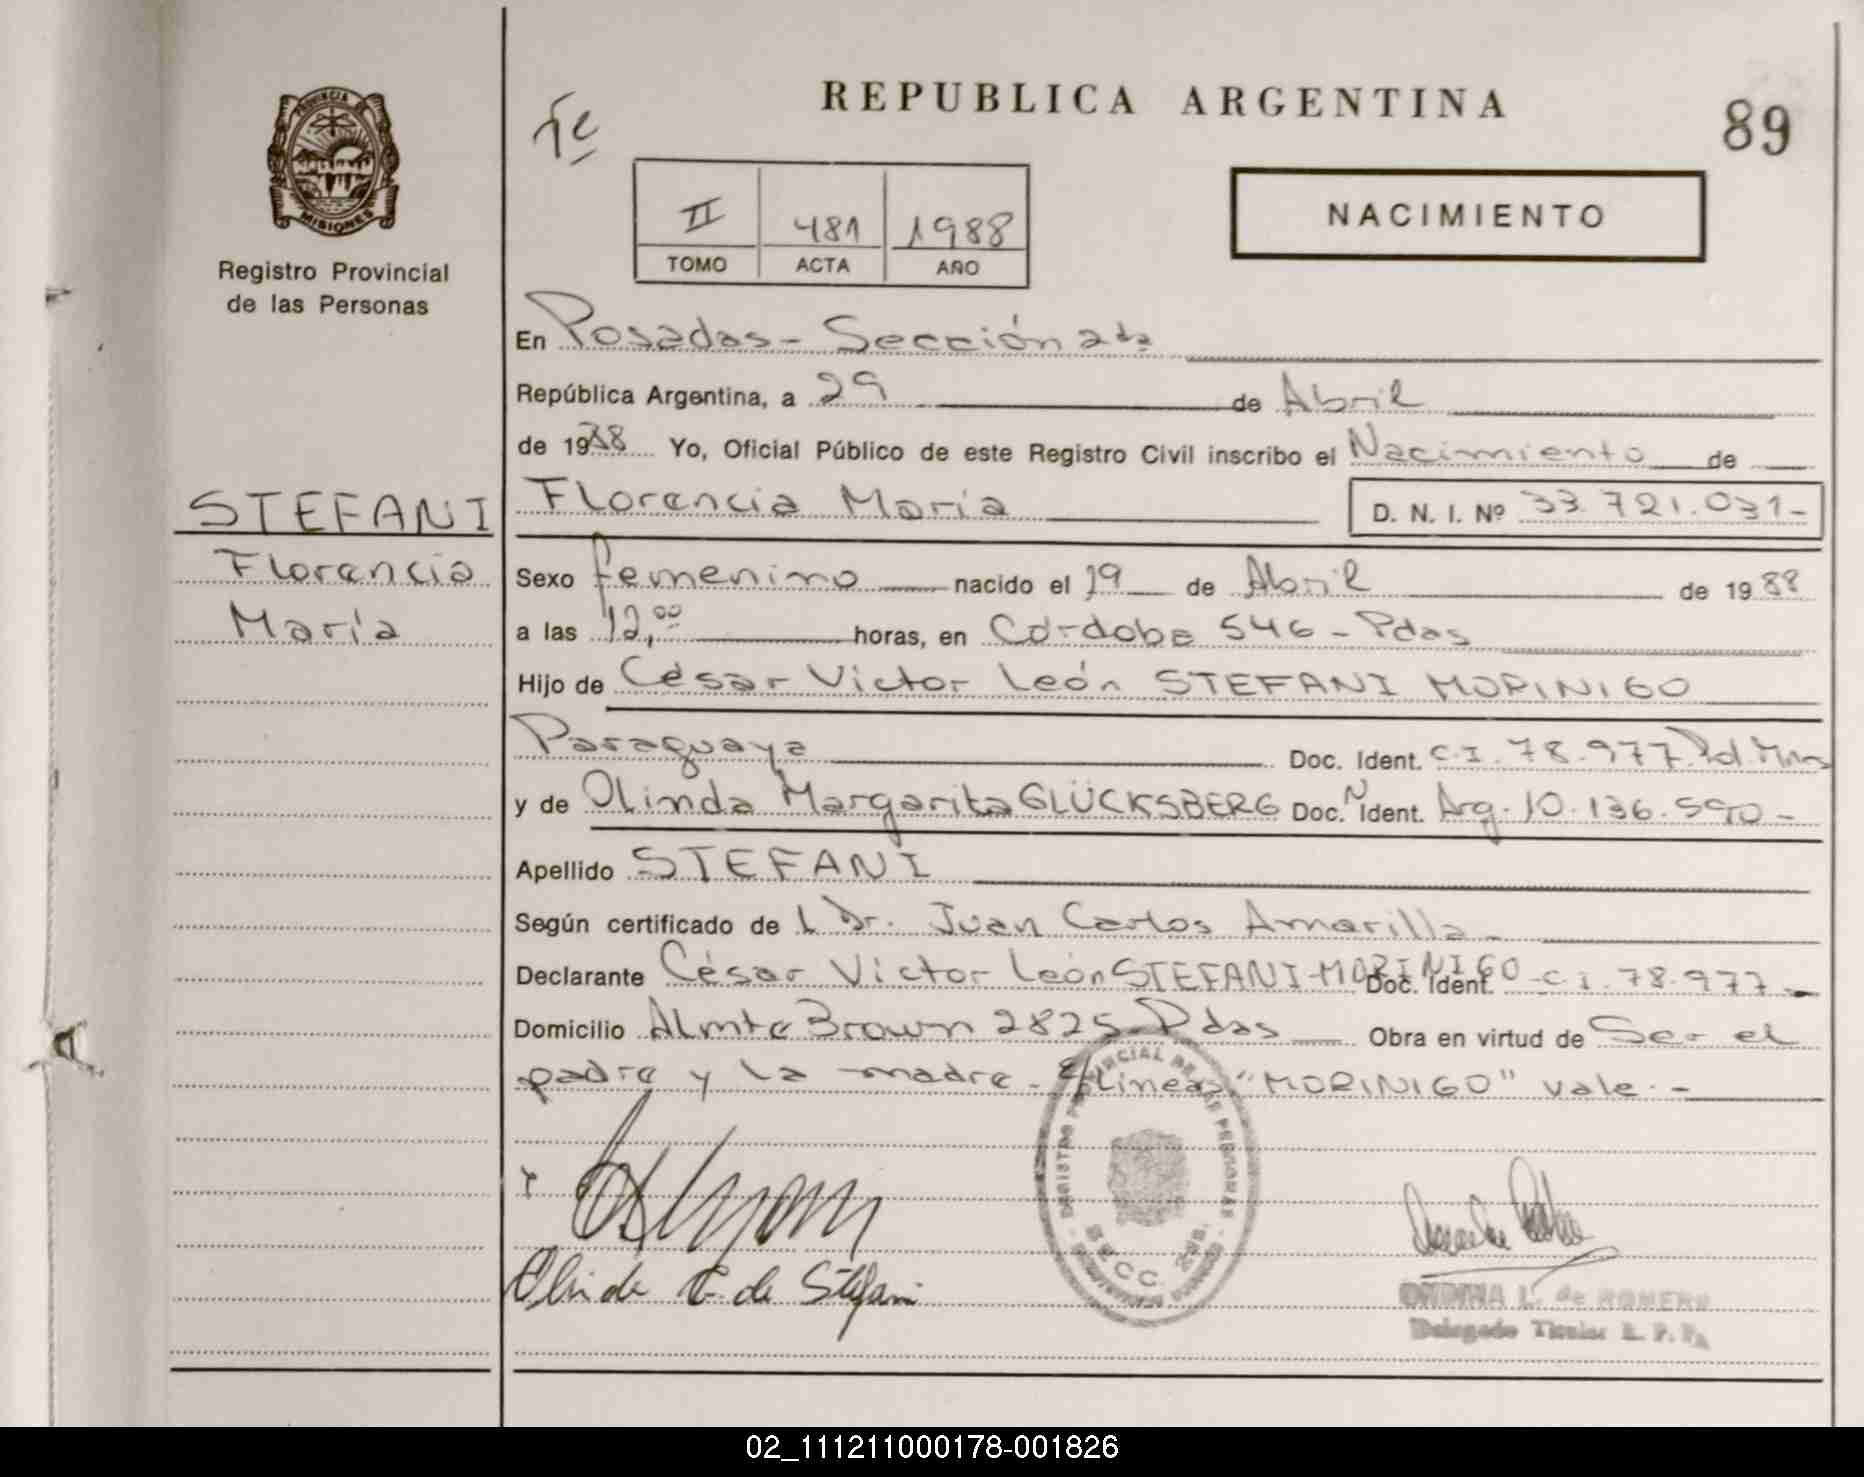 REPUBLICA ARGENTINA
89
PROVINCIA DE MISIONES
Registro Provincial
de las Personas
II 481 1988
TOMO ACTA AÑO
NACIMIENTO
En Posadas - Sección 2da
República Argentina, a 29 de Abril
de 1988 Yo, Oficial Público de este Registro Civil inscribo el Nacimiento de
STEFANI
Florencia
María
Florencia María D. N. I. Nº 33.721.031-
Sexo femenino nacido el 19 de Abril de 1988
a las 12,00 horas, en Córdoba 546 - Pdas
Hijo de César Victor León STEFANI MORINIGO
Paraguaya Doc. Ident. C.I. 78.977 Pol. Mnes
y de Olinda Margarita GLÜCKSBERG Doc. Ident. N Arg. 10.136.590-
Apellido STEFANI
Según certificado de l Dr. Juan Carlos Amarilla -
Declarante César Victor León STEFANI-MORINIGO Doc. Ident. C.I. 78.977 -
Domicilio Almte Brown 2825 Pdas Obra en virtud de Ser el
padre y la madre - E/Lineas "MORINIGO" vale. -
REGISTRO PROVINCIAL DE LAS PERSONAS
SECC. 2da.
Olinda G. de Stefani
ONDINA L. de ROMERO
Delegado Titular R. P. P.
02_111211000178-001826